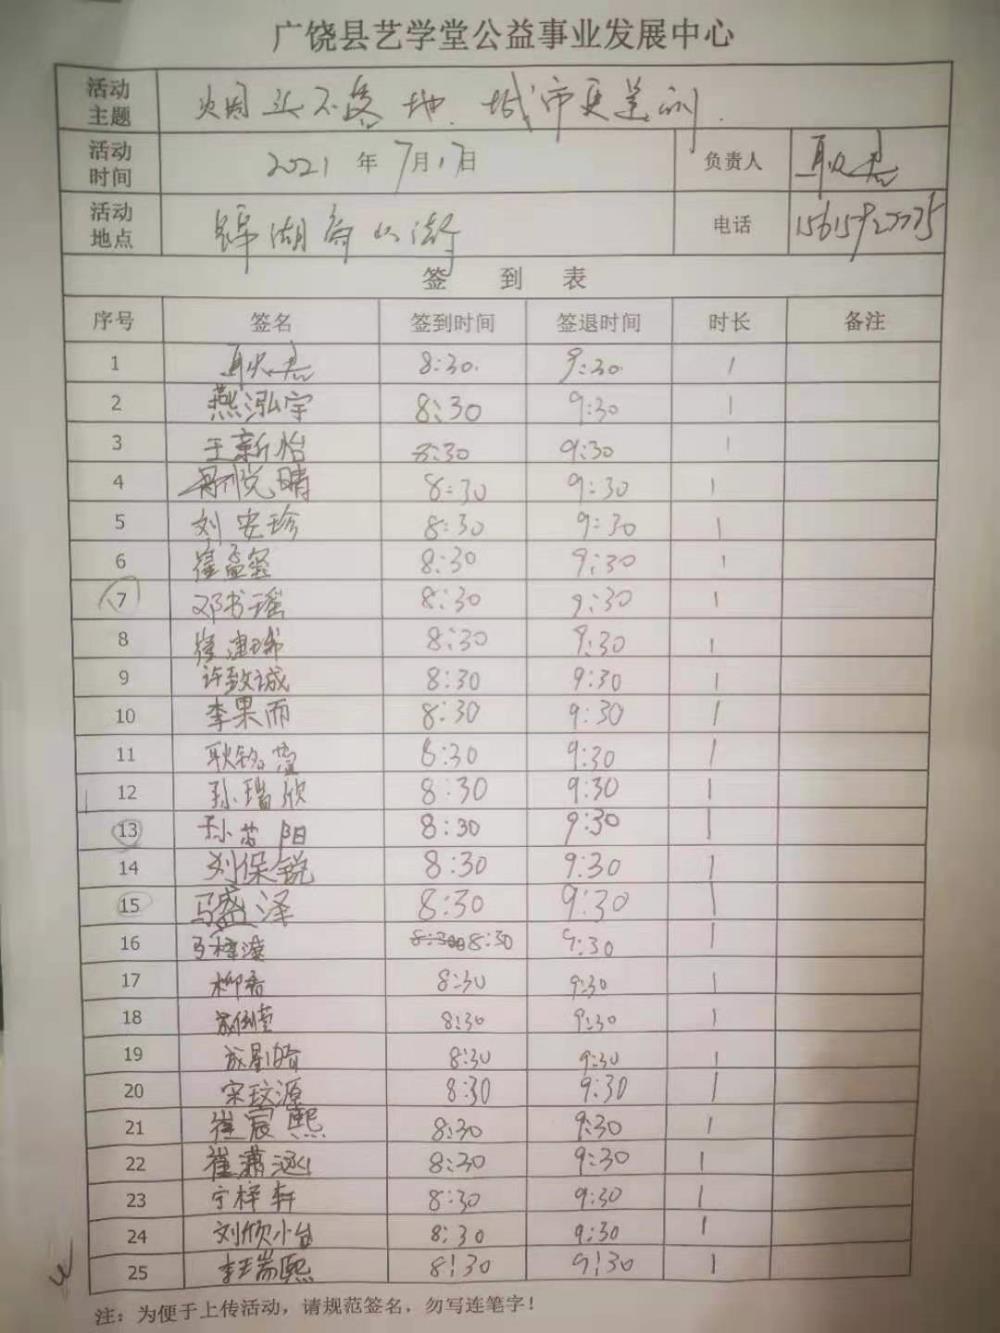 广饶县艺学堂公益事业发展中心
活动主题 烟头不落地、城市更美丽.
活动时间 2021年7月17日 负责人 耿
活动地点 锦湖商业街 电话
签到表
序号 签名 签到时间 签退时间 时长 备注
1 耿 8:30. 9:30. 1
2 燕泓宇 8:30 9:30 1
3 王新怡 8:30 9:30 1
4 悦晴 8:30 9:30 1
5 刘安珍 8:30 9:30 1
6 崔孟 8:30 9:30 1
7 邓书瑶 8:30 9:30 1
8 崔 8:30 9:30 1
9 许致诚 8:30 9:30 1
10 李果而 8:30 9:30 1
11 耿铭萱 8:30 9:30 1
12 孙瑞欣 8:30 9:30 1
13 孙芸阳 8:30 9:30 1
14 刘保锐 8:30 9:30 1
15 马盛泽 8:30 9:30 1
16 8:30 9:30 1
17 柳 8:30 9:30 1
18 8:30 9:30 1
19 成 8:30 9:30 1
20 宋玟源 8:30 9:30 1
21 崔宸熙 8:30 9:30 1
22 崔潇 8:30 9:30 1
23 宁梓轩 8:30 9:30 1
24 刘欣 8:30 9:30 1
25 李瑞熙 8:30 9:30 1
注：为便于上传活动，请规范签名，勿写连笔字！